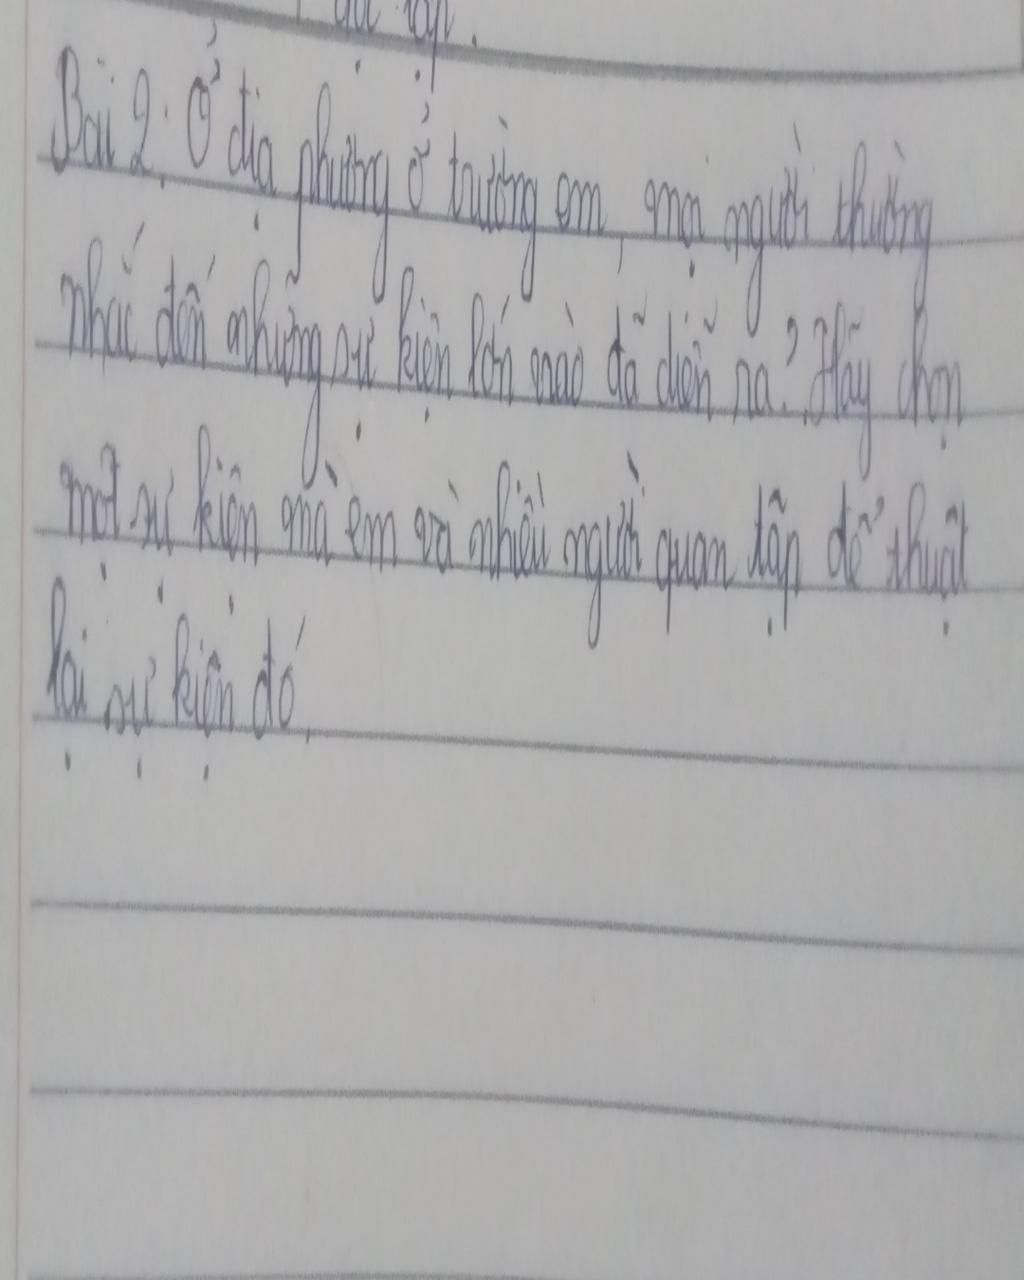 độc lập.
Bài 2. Ở địa phương ở trường em, mọi người thường
nhắc đến những sự kiện lớn nào đã diễn ra? Hãy chọn
một sự kiện mà em và nhiều người quan tập để thuật
lại sự kiện đó.